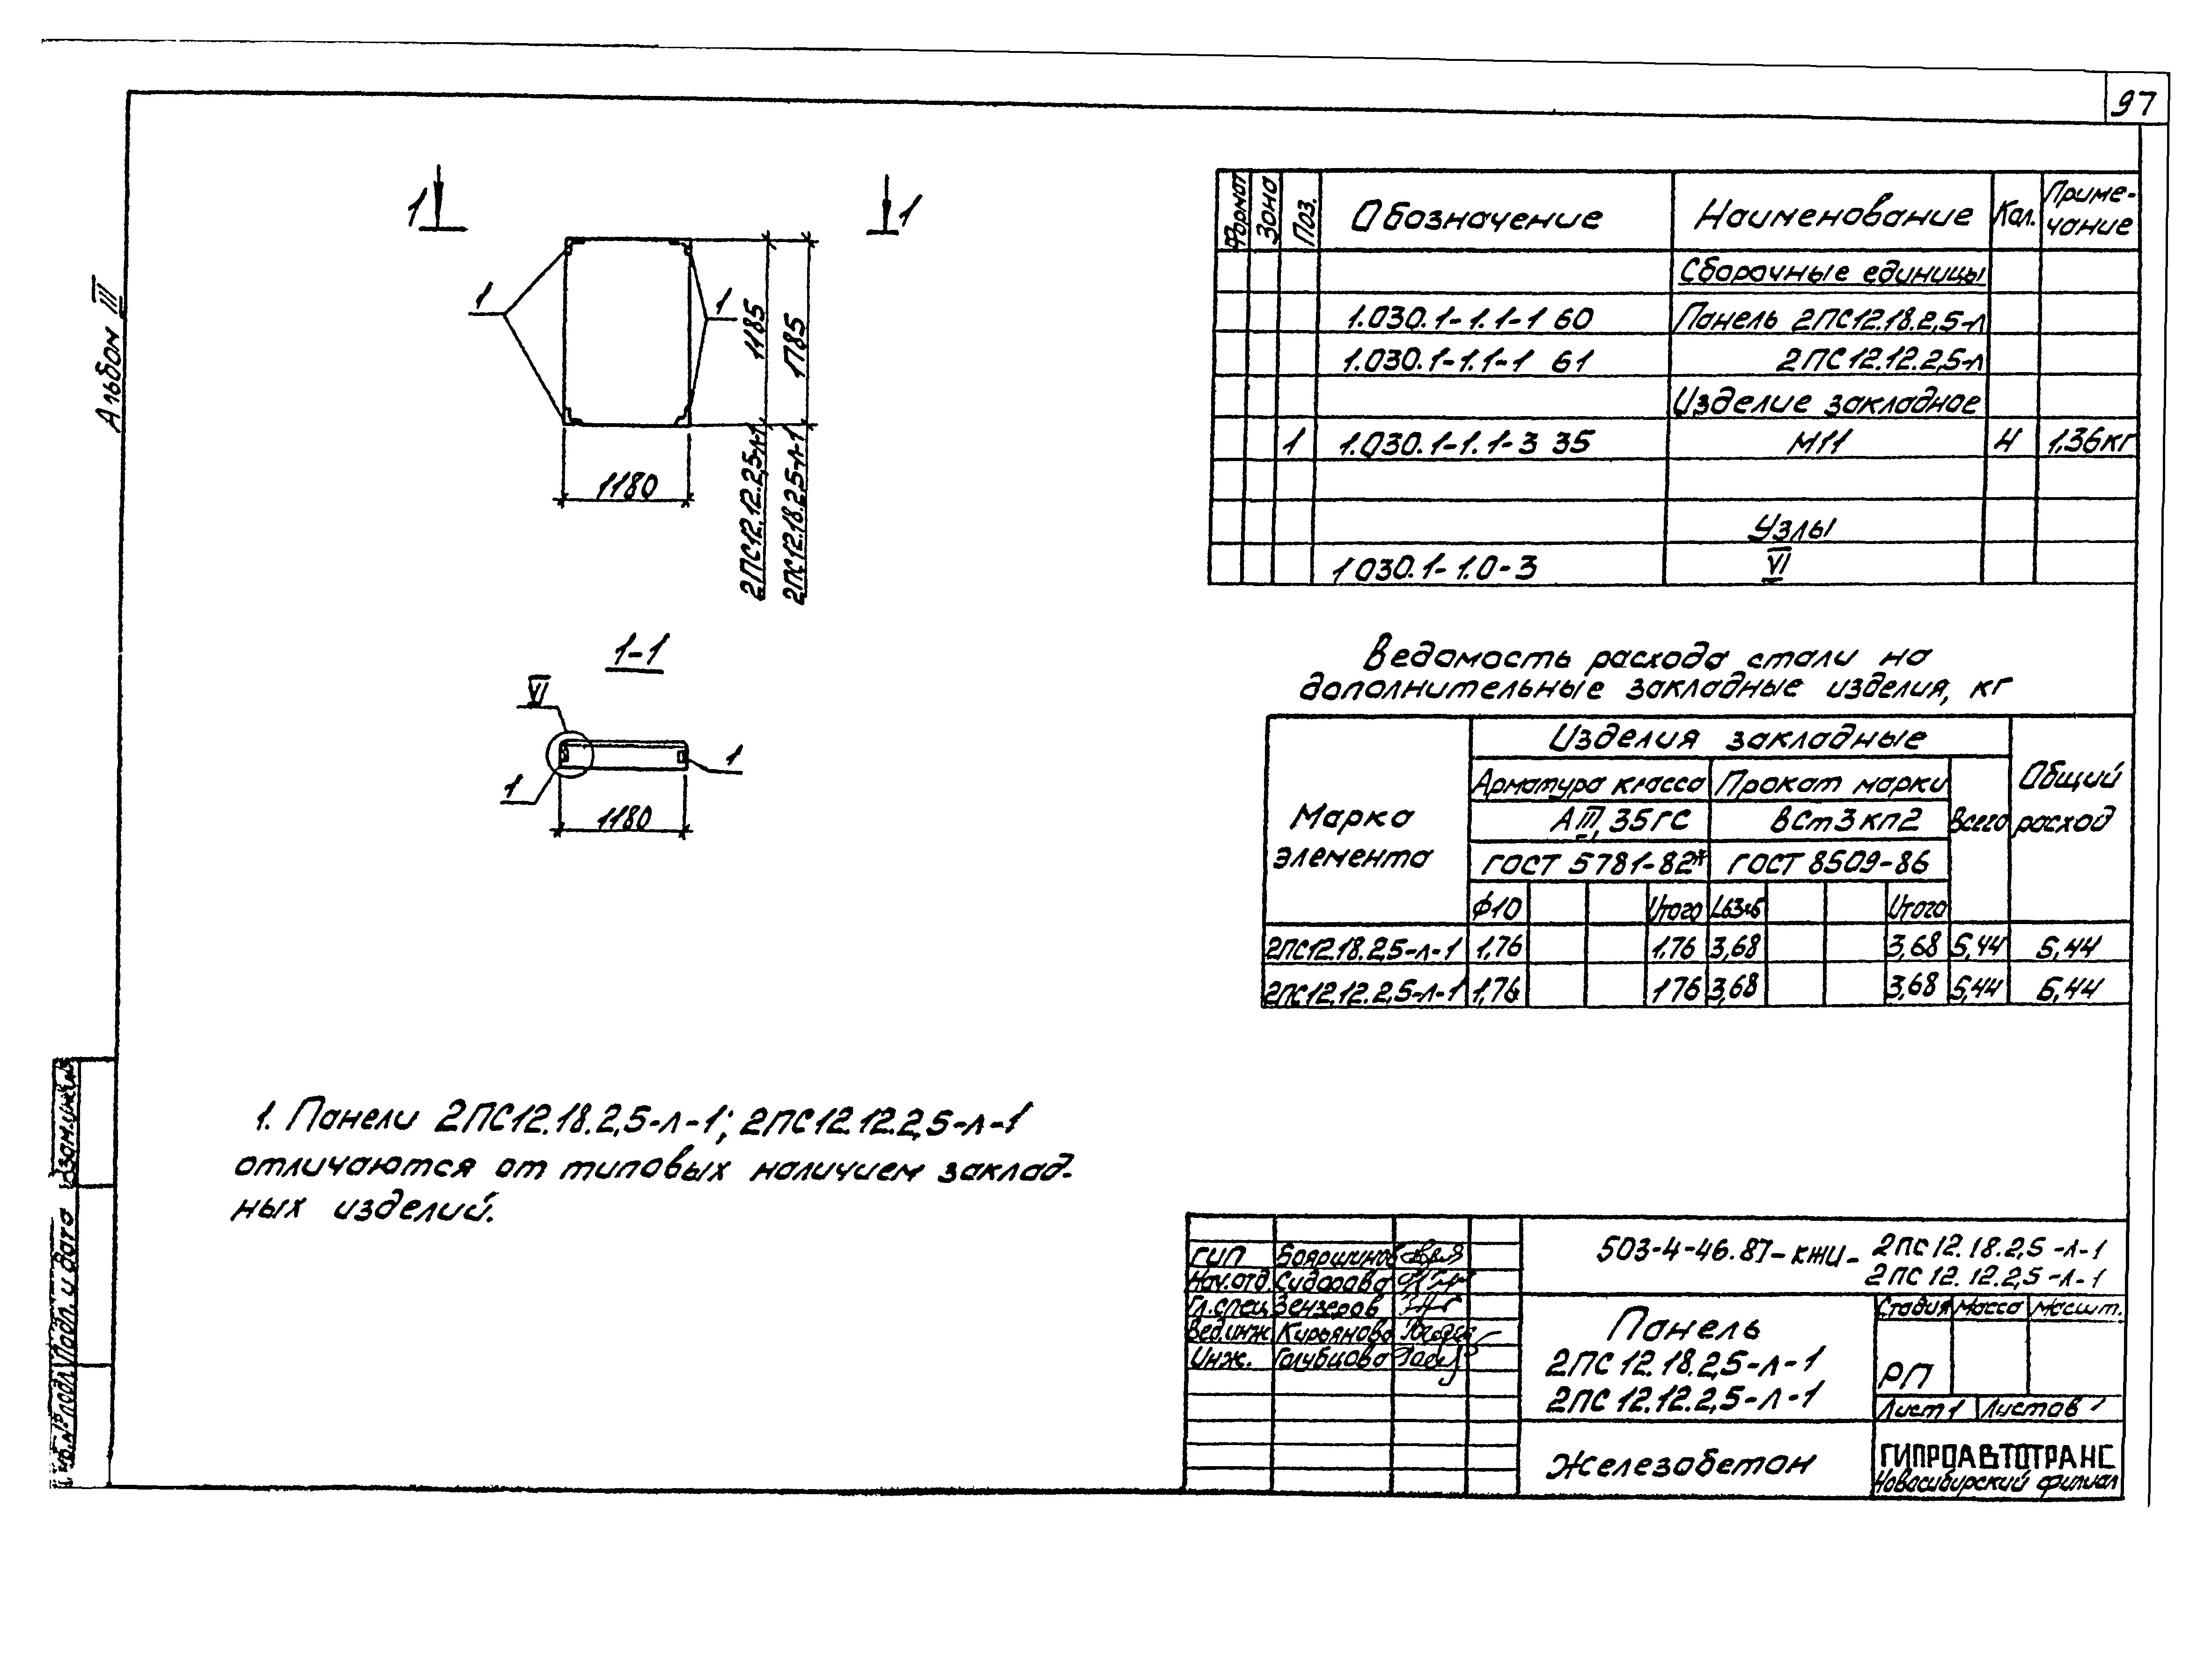 97
Альбом III
1 1
1 1
1185
1785
2ПС12.12.2,5-л-1
2ПС12.18.2,5-л-1
1180
1-1
VI
1 1
1180
Формат Зона Поз. Обозначение Наименование Кол. Приме-
чание
Сборочные единицы
1.030.1-1.1-1 60 Панель 2ПС12.18.2,5-л
1.030.1-1.1-1 61 2ПС12.12.2,5-л
Изделие закладное
1 1.030.1-1.1-3 35 М11 4 1,36кг
Узлы
1030.1-1.0-3 VI
Ведомость расхода стали на
дополнительные закладные изделия, кг
Марка
элемента
Изделия закладные
Общий
расход
Арматура класса Прокат марки
Всего
АIII, 35ГС ВСт3кп2
ГОСТ 5781-82* ГОСТ 8509-86
Ф10 Итого L63х5 Итого
2ПС12.18.2,5-л-1 1,76 1,76 3,68 3,68 5,44 5,44
2ПС12.12.2,5-л-1 1,76 176 3,68 3,68 5,44 5,44
1. Панели 2ПС12.18.2,5-л-1; 2ПС12.12.2,5-л-1
отличаются от типовых наличием заклад-
ных изделий.
Взам.инв.№
Подп. и дата
Инв.№ подл.
503-4-46.87-КЖИ- 2ПС12.18.2,5-л-1
2ПС12.12.2,5-л-1
ГИП Бояршинов
Нач.отд. Сидорова
Гл.спец. Зензеров
Вед.инж. Кирьянова
Инж. Голубцова
Панель
2ПС12.18.2,5-л-1
2ПС12.12.2,5-л-1
Стадия Масса Масшт.
РП
Лист 1 Листов 1
Железобетон
ГИПРОАВТОТРАНС
Новосибирский филиал